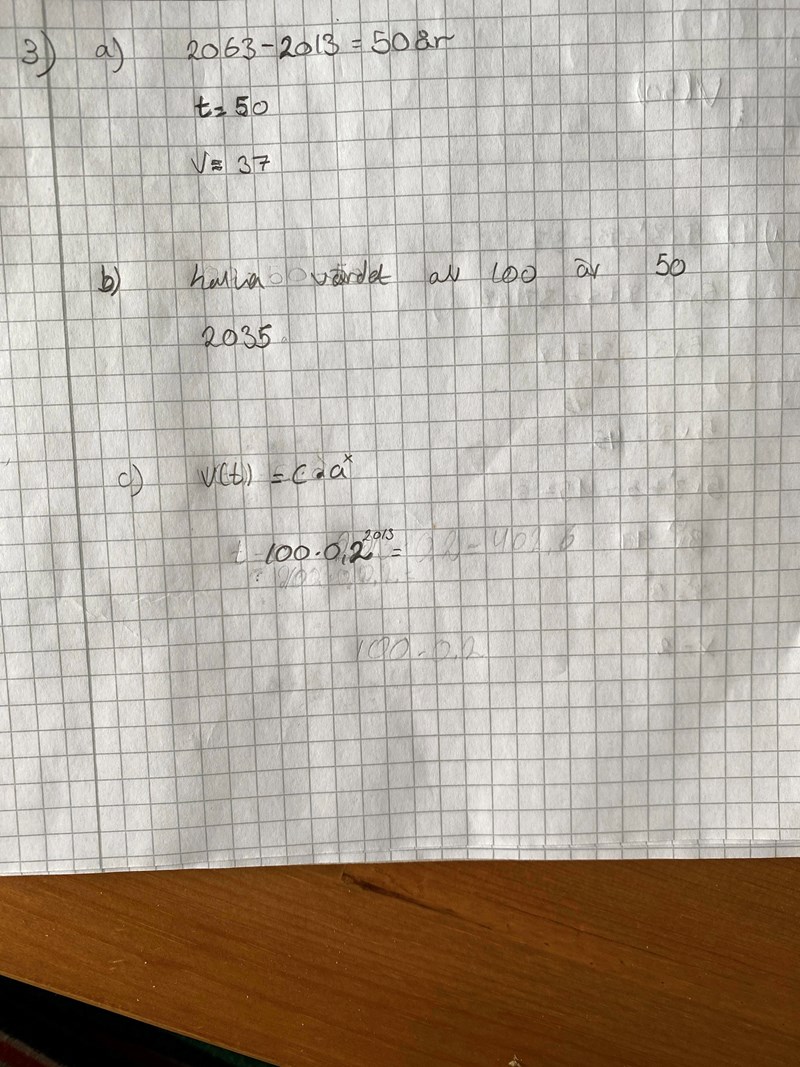 3) a) 2063-2013 = 50 år
t= 50
V≈ 37
b) halva värdet av 100 är 50
2035
c) V(t) = C·a^x
100·0,2^2013 =
100·0,2